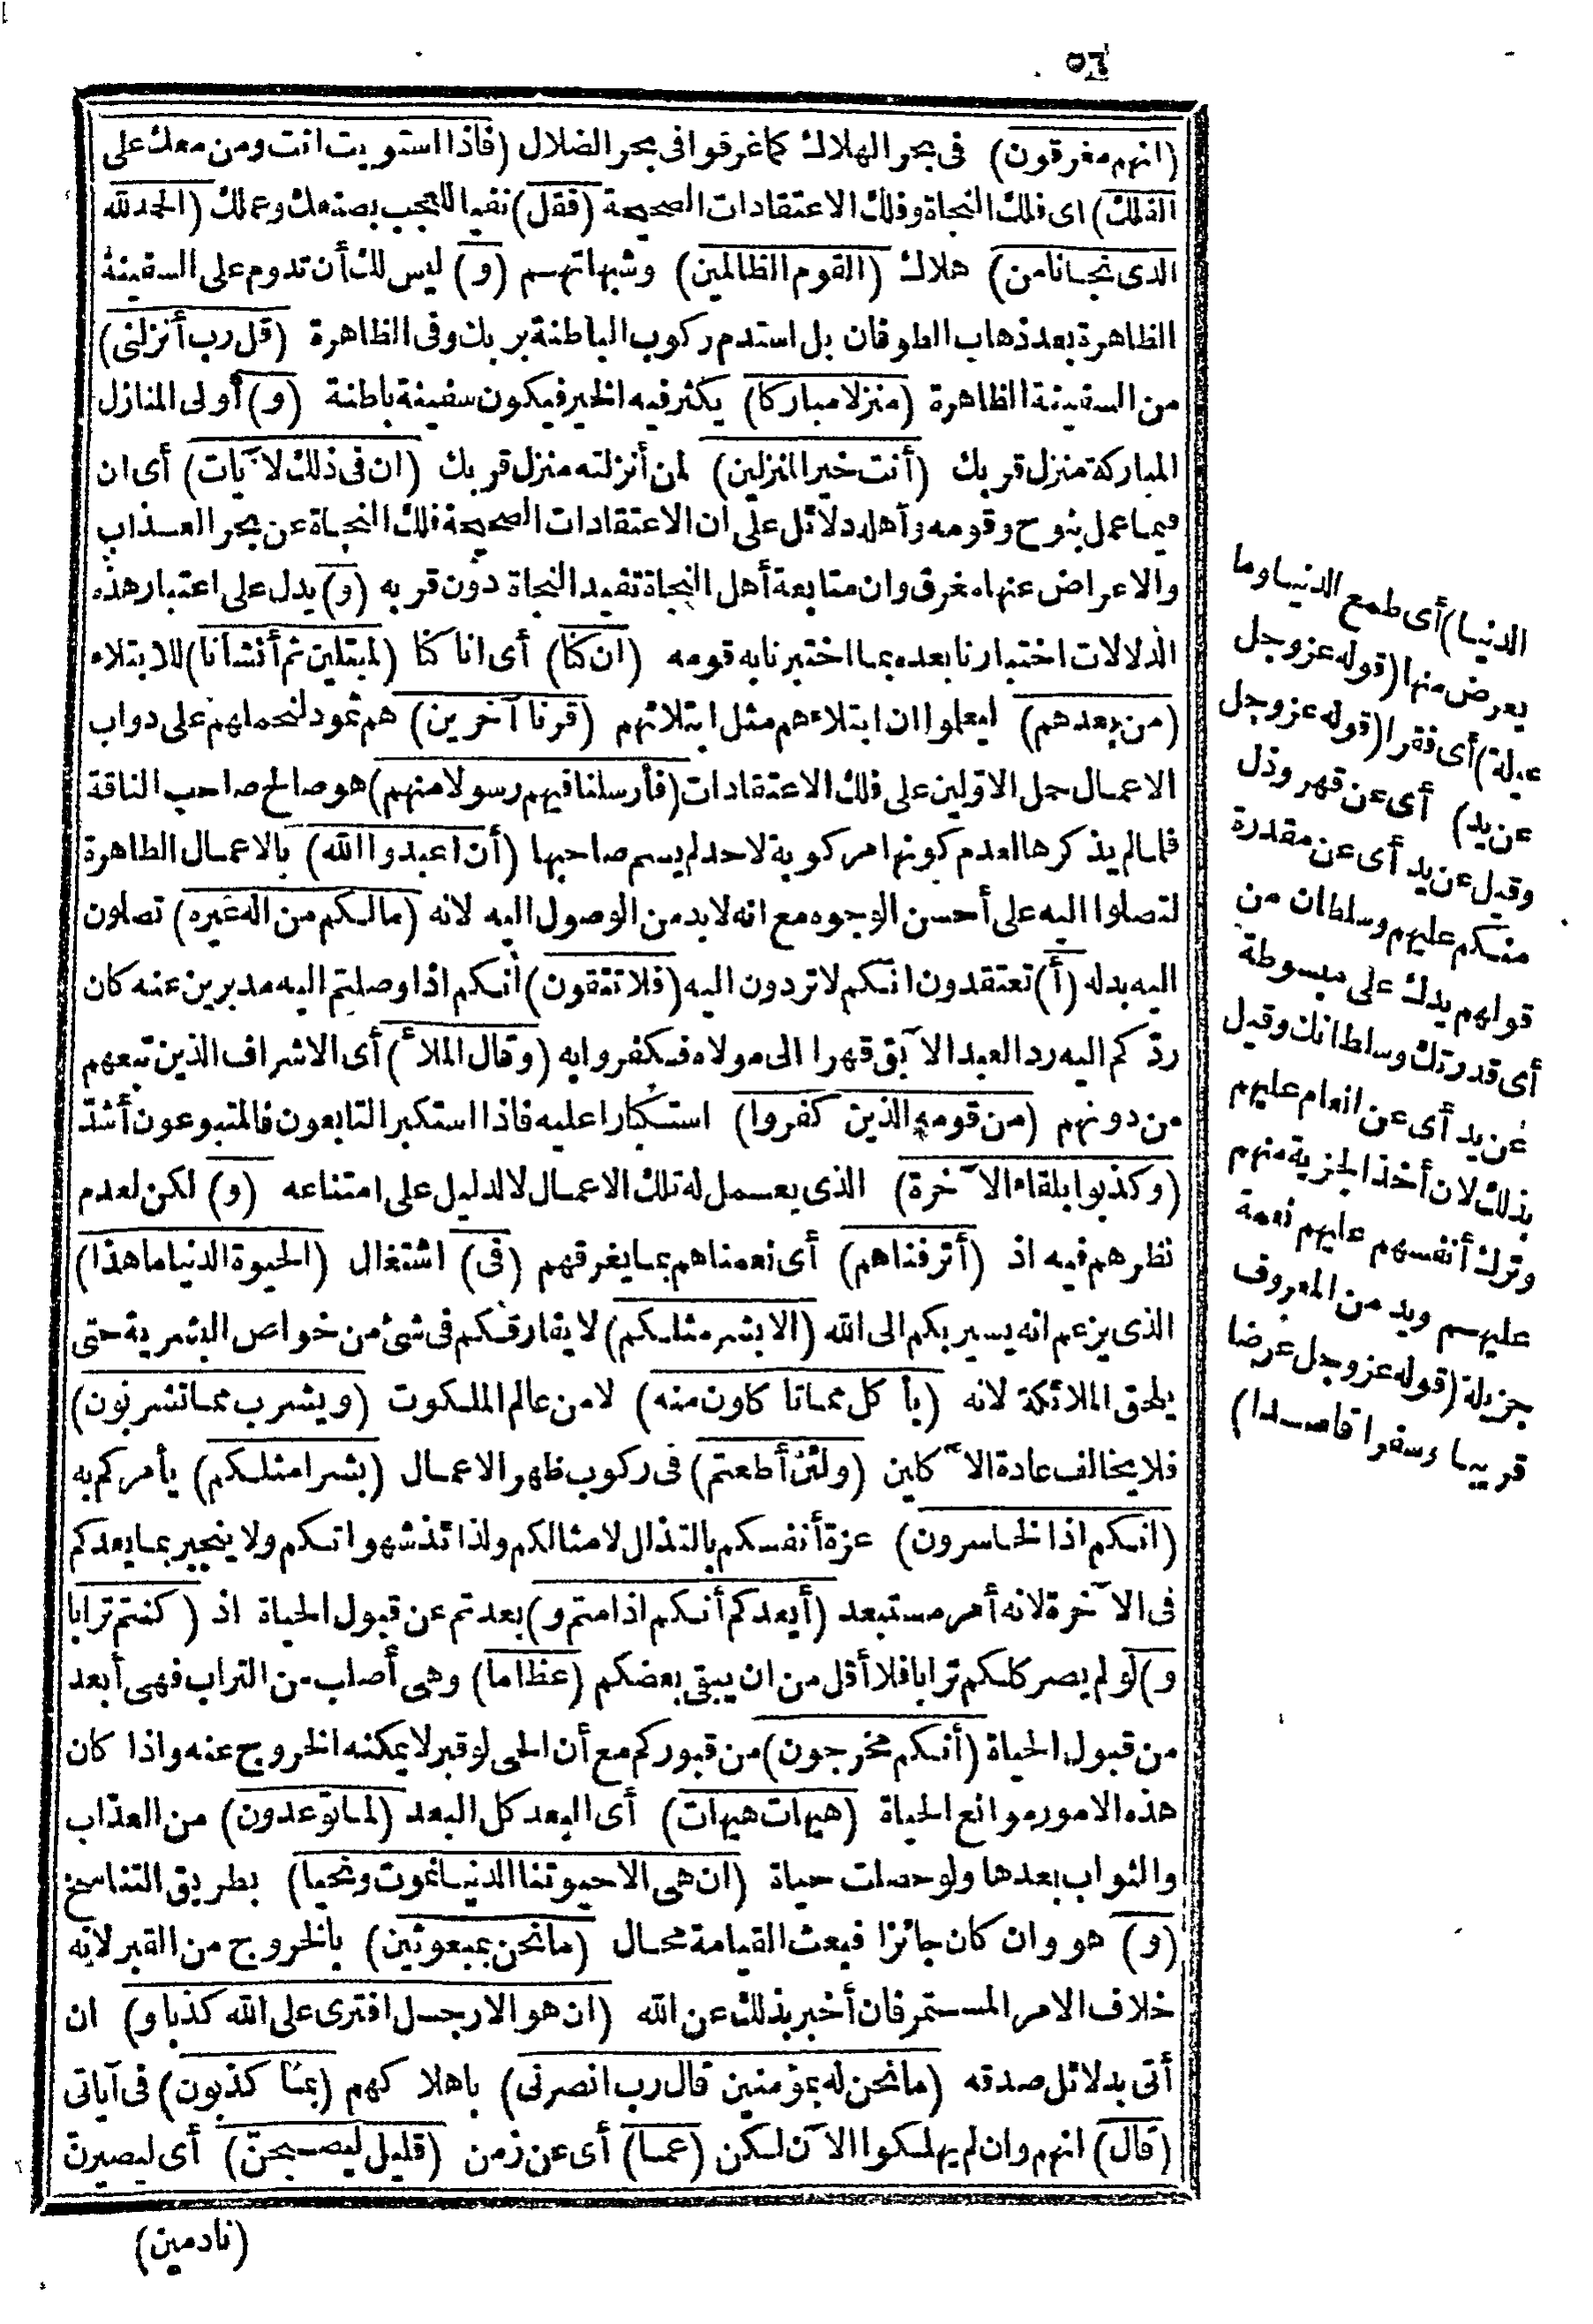 (انهم مغرقون) فى بحر الهلاك كما غرقوا فى بحر الضلال (فاذا استويت أنت ومن معك على
الفلك) اى فلك النجاة وفلك الاعتقادات الصحيحة (فقل) نفيا للتعجب بصنعك وعملك (الحمد لله
الذى نجانا من) هلاك (القوم الظالمين) وشبهاتهم (و) ليس لك أن تدوم على السفينة
الظاهرة بعد ذهاب الطوفان بل استدم ركوب الباطنة بربك وفى الظاهرة (قل رب أنزلنى)
من السفينة الظاهرة (منزلا مباركا) يكثر فيه الخير فيكون سفينة باطنة (و) أولى المنازل
المباركة منزل قربك (أنت خير المنزلين) لمن أنزلته منزل قربك (ان فى ذلك لآيات) أى ان
فيما عمل بنوح وقومه وأهله دلائل على ان الاعتقادات الصحيحة فلك النجاة عن بحر العذاب
والاعراض عنها مغرق وان متابعة أهل النجاة تفيد النجاة دون قربه (و) يدل على اعتبار هذه
الدلالات اختبارنا بعده بما اختبرنا به قومه (ان كنا) أى انا كنا (لمبتلين ثم أنشأنا) للابتلاء
(من بعدهم) ليعلموا ان ابتلاءهم مثل ابتلائهم (قرنا آخرين) هم ثمود لنحملهم على دواب
الاعمال حمل الاولين على فلك الاعتقادات (فأرسلنا فيهم رسولا منهم) هو صالح صاحب الناقة
فلما لم يذكرها لعدم كونها مركوبة لاحد لم يسم صاحبها (أن اعبدوا الله) بالاعمال الظاهرة
لتصلوا اليه على أحسن الوجوه مع انه لابد من الوصول اليه لانه (مالكم من اله غيره) تصلون
اليه بدله (أ) تعتقدون انكم لا تردون اليه (فلا تتقون) أنكم اذا وصلتم اليه مدبرين عنه كان
ردكم اليه رد العبد الآبق قهرا الى مولاه فكفروا به (وقال الملأ) أى الاشراف الذين تبعهم
من دونهم (من قومه الذين كفروا) استكبارا عليه فاذا استكبر التابعون فالمتبوعون أشد
(وكذبوا بلقاء الآخرة) الذى يعمل له تلك الاعمال لا لدليل على امتناعه (و) لكن لعدم
نظرهم فيه اذ (أترفناهم) أى نعمناهم بما يغرقهم (فى) اشتغال (الحيوة الدنيا ما هذا)
الذى يزعم انه يسير بكم الى الله (الا بشر مثلكم) لا يفارقكم فى شئ من خواص البشرية حتى
يلحق الملائكة لانه (يأكل مما تأكلون منه) لا من عالم الملكوت (ويشرب مما تشربون)
فلا يخالف عادة الآكلين (ولئن أطعتم) فى ركوب ظهر الاعمال (بشرا مثلكم) يأمركم به
(انكم اذا لخاسرون) عزة أنفسكم بالتذلل لامثالكم ولذائذ شهواتكم ولا ينجبر بما يعدكم
فى الآخرة لانه أمر مستبعد (أيعدكم أنكم اذا متم و) بعدتم عن قبول الحياة اذ (كنتم ترابا
و) لو لم يصر كلكم ترابا فلا أقل من ان يبقى بعضكم (عظاما) وهى أصلب من التراب فهى أبعد
من قبول الحياة (أنكم مخرجون) من قبوركم مع أن الحى لو قبر لا يمكنه الخروج عنه واذا كان
هذه الامور موانع الحياة (هيهات هيهات) أى البعد كل البعد (لما توعدون) من العذاب
والثواب بعدها ولو حصلت حياة (ان هى الا حيوتنا الدنيا نموت ونحيا) بطريق التناسخ
(و) هو وان كان جائزا فبعث القيامة محال (ما نحن بمبعوثين) بالخروج من القبر لانه
خلاف الامر المستمر فان أخبر بذلك عن الله (ان هو الا رجل افترى على الله كذبا و) ان
أتى بدلائل صدقه (ما نحن له بمؤمنين قال رب انصرنى) باهلاكهم (بما كذبون) فى آياتى
(قال) انهم وان لم يهلكوا الآن لكن (عما) أى عن زمن (قليل ليصبحن) أى ليصيرن
(نادمين)
الدنيا) أى طمع الدنيا وما
يعرض منها (قوله عز وجل
عيلة) أى فقرا (قوله عز وجل
عن يد) أى عن قهر وذل
وقيل عن يد أى عن مقدرة
منكم عليهم وسلطان من
قولهم يدك على مبسوطة
أى قدرتك وسلطانك وقيل
عن يد أى عن انعام عليهم
بذلك لان أخذ الجزية منهم
وترك أنفسهم عليهم نعمة
عليهم ويد من المعروف
جزيلة (قوله عز وجل عرضا
قريبا وسفرا قاصدا)